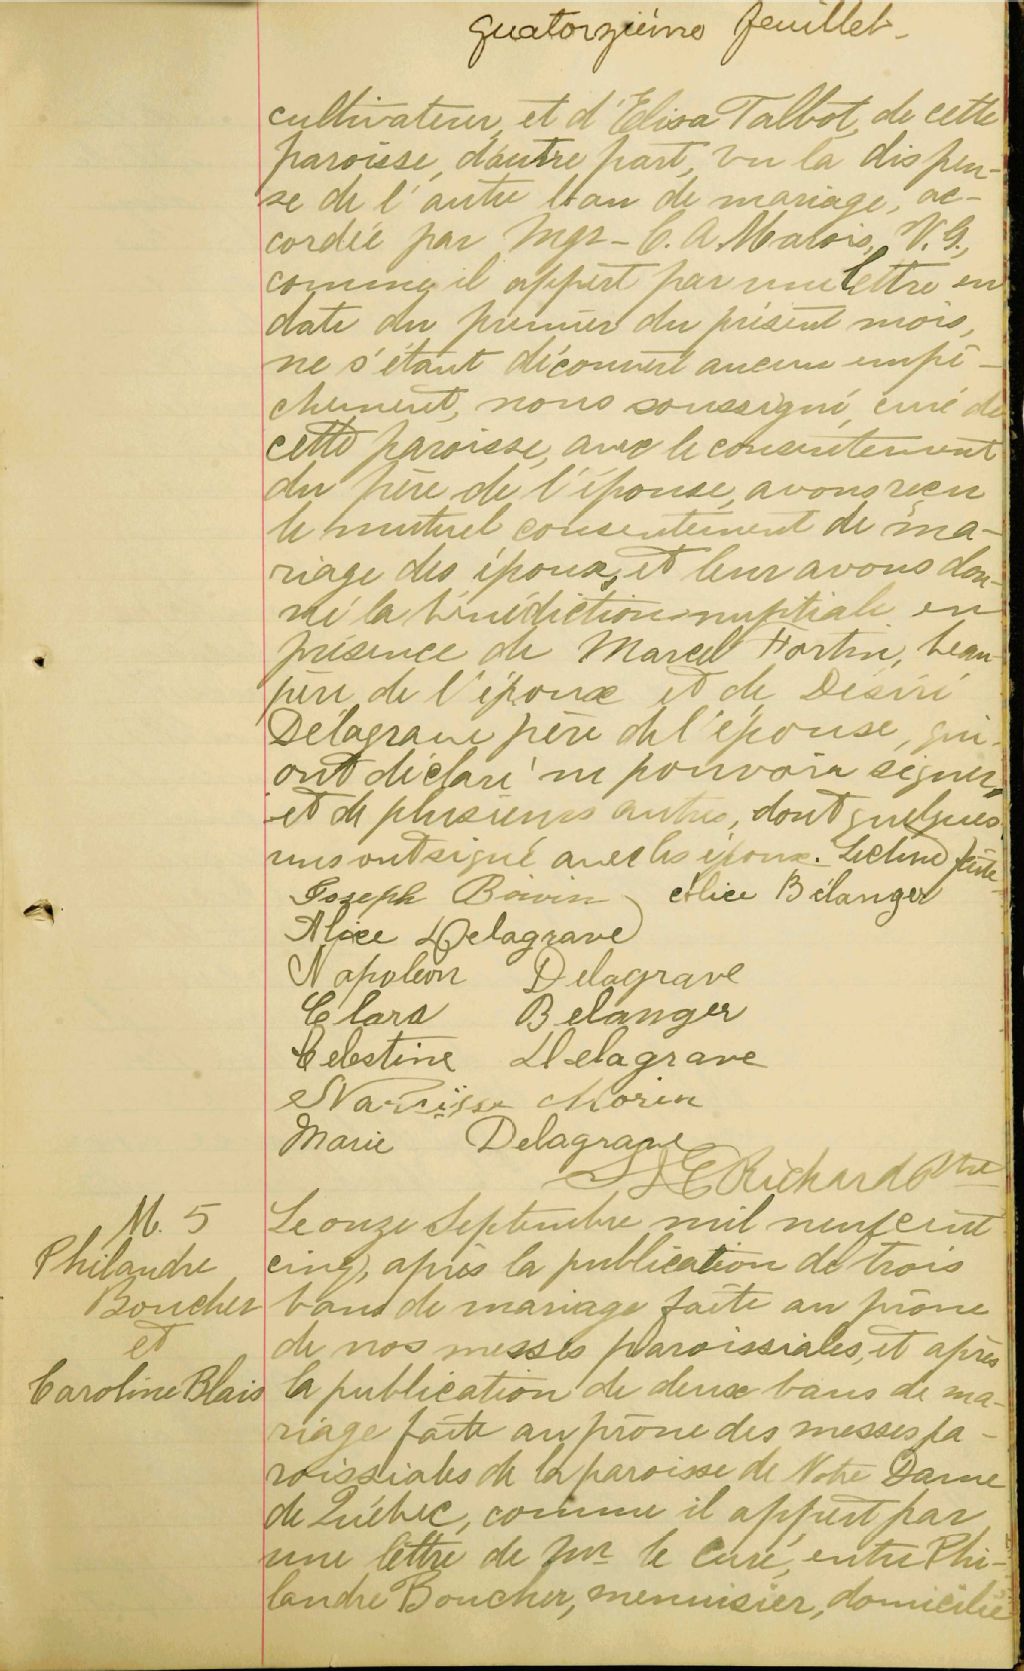 quatorzième feuillet-
cultivateur, et d'Elisa Talbot, de cette
paroisse, d'autre part, vu la dispen-
se de l'autre ban de mariage, ac-
cordée par Mgr - C. A. Marois, V. G.,
comme il appert par une lettre en
date du premier du présent mois,
ne s'étant découvert aucun empê-
chement, nous soussigné, curé de
cette paroisse, avec le consentement
du père de l'épouse, avons reçu
le mutuel consentement de ma-
riage des époux, et leur avons don-
né la bénédiction nuptiale en
présence de Marcel Fortin, beau-
père de l'époux et de Désiré
Délagrave père de l'épouse, qui
ont déclaré ne pouvoir signer,
et de plusieurs autres, dont quelques
uns ont signé avec les époux. Lecture faite-
Joseph Boivin Alice Bélanger
Alice Delagrave
Napoléon Delagrave
Clara Belanger
Celestine Delagrave
Narcisse Morin
Marie Delagrave
Richard Ptre
M. 5
Philandre
Boucher
et
Caroline Blais
Le onze Septembre mil neuf cent
cinq, après la publication de trois
bans de mariage faite au prône
de nos messes paroissiales, et après
la publication de deux bans de ma-
riage faite au prône des messes pa-
roissiales de la paroisse de Notre Dame
de Québec, comme il appert par
une lettre de Mr le Curé, entre Phi-
landre Boucher, menuisier, domicilié